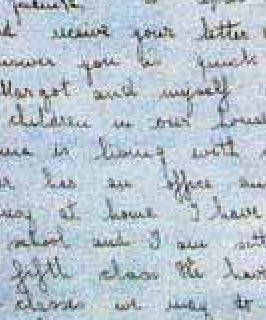 receive your letter
answer you as quick
Margot and myself
children in our house
is living with
has an office
at home I have
school and I am
fifth class We have
classes we may do